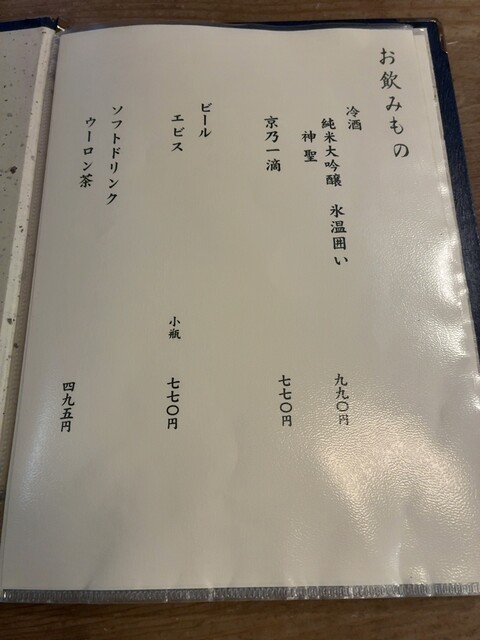 お飲みもの
冷酒
純米大吟醸 氷温囲い
神聖
九九〇円
京乃一滴
七七〇円
ビール
ヱビス
小瓶
七七〇円
ソフトドリンク
ウーロン茶
四九五円